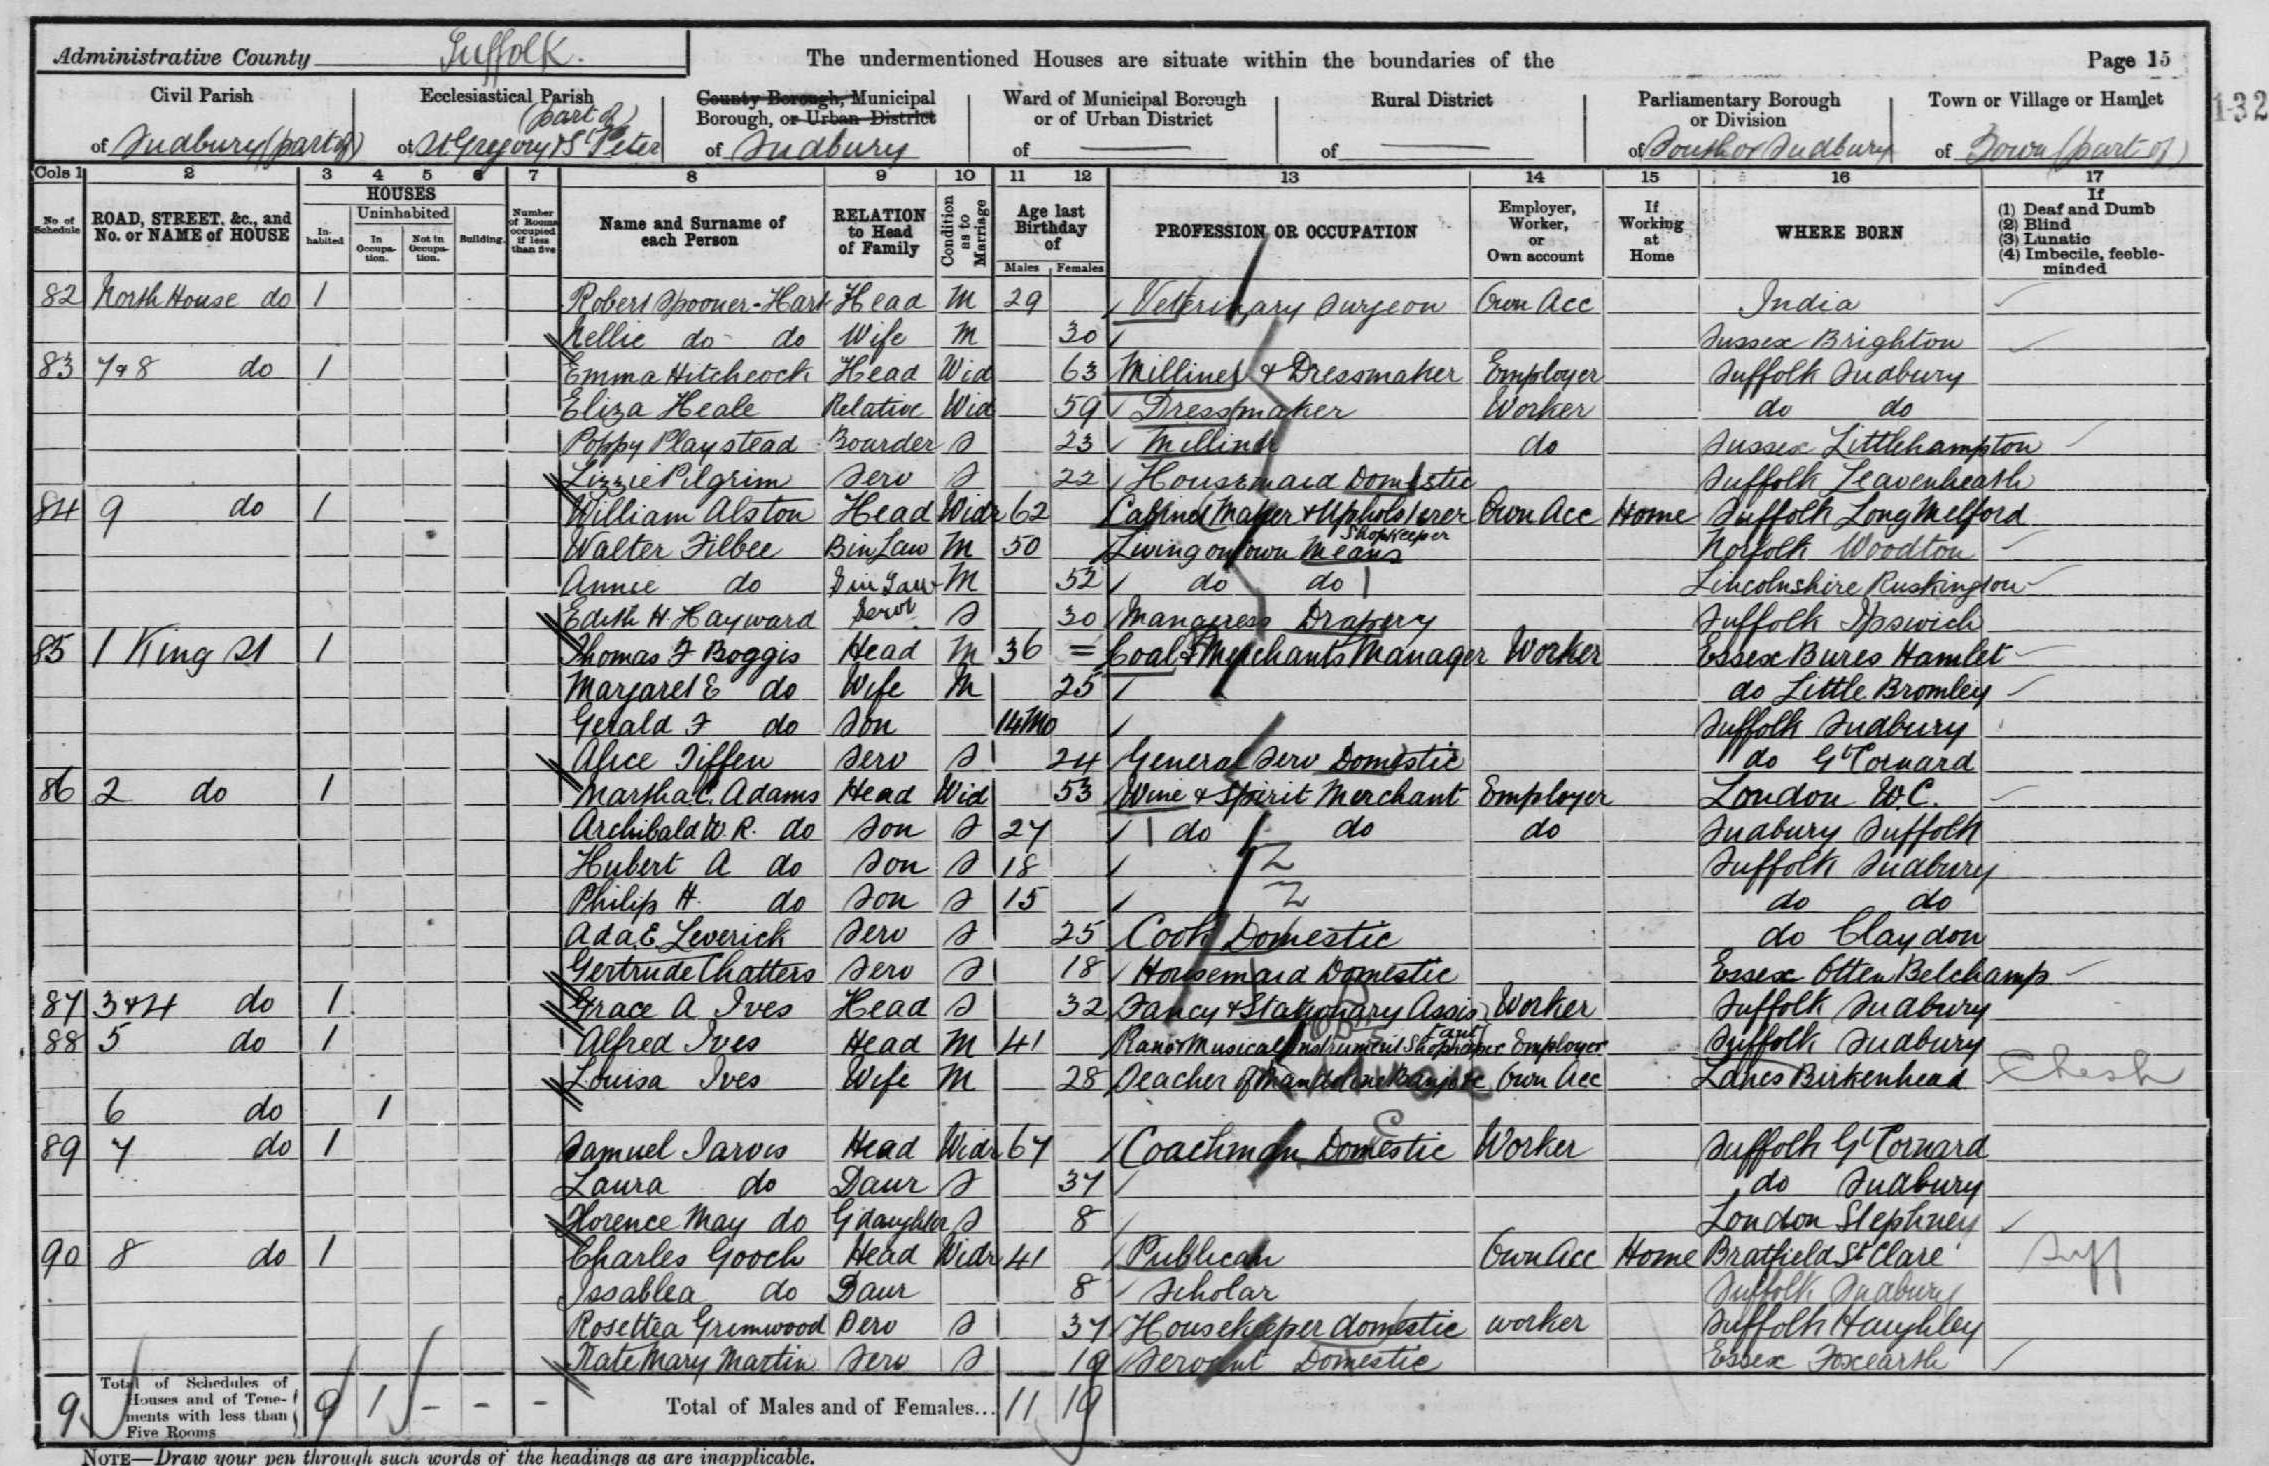 Administrative County Suffolk. The undermentioned Houses are situate within the boundaries of the Page 15
Civil Parish Ecclesiastical Parish County Borough, Municipal Borough, or Urban District Ward of Municipal Borough or of Urban District Rural District Parliamentary Borough or Division Town or Village or Hamlet 132
of Sudbury (part of) of St Gregory & St Peter (part of) of Sudbury of of of South or Sudbury of Town (part of)
Cols 1 2 3 4 5 6 7 8 9 10 11 12 13 14 15 16 17
No of Schedule ROAD, STREET, &c., and No. or NAME of HOUSE HOUSES Inhabited Uninhabited In Occupation. Not in Occupation. Building. Number of Rooms occupied if less than five Name and Surname of each Person RELATION to Head of Family Condition as to Marriage Age last Birthday of Males Females PROFESSION OR OCCUPATION Employer, Worker, or Own account If Working at Home WHERE BORN If (1) Deaf and Dumb (2) Blind (3) Lunatic (4) Imbecile, feeble-minded
82 North House do 1 Robert Spooner-Hart Head M 29 Veterinary Surgeon Own Acc India
Nellie do do Wife M 30 Sussex Brighton
83 7&8 do 1 Emma Hitchcock Head Wid 63 Milliner & Dressmaker Employer Suffolk Sudbury
Eliza Heale Relative Wid 59 Dressmaker Worker do do
Poppy Playstead Boarder S 23 Milliner do Sussex Littlehampton
Lizzie Pilgrim Serv S 22 Housemaid Domestic Suffolk Leavenheath
84 9 do 1 William Alston Head Widr 62 Cabinet Maker & Upholsterer Shopkeeper Own Acc Home Suffolk Long Melford
Walter Filbee B in Law M 50 Living on own Means Norfolk Woodton
Annie do S in Law M 52 do do Lincolnshire Ruskington
Edith H. Hayward Servt S 30 Mangeress Drapery Suffolk Ipswich
85 1 King St 1 Thomas F Boggis Head M 36 = Coal & Merchants Manager Worker Essex Bures Hamlet
Margaret E do Wife M 25 do Little Bromley
Gerald F do Son 14 Mo Suffolk Sudbury
Alice Tiffen Serv S 24 General Serv Domestic do Gt Cornard
86 2 do 1 Martha C. Adams Head Wid 53 Wine & Spirit Merchant Employer London W.C.
Archibald W. R. do Son S 27 do do do Sudbury Suffolk
Hubert A do Son S 18 Suffolk Sudbury
Philip H. do Son S 15 do do
Ada E. Leverick Serv S 25 Cook Domestic do Claydon
Gertrude Chatters Serv S 18 Housemaid Domestic Essex Otten Belchamp
87 3&4 do 1 Grace A Ives Head S 32 Fancy & Stationary Assistant Worker Suffolk Sudbury
88 5 do 1 Alfred Ives Head M 41 Piano & Musical Instrument Shopkeeper Employer Suffolk Sudbury
Louisa Ives Wife M 28 Teacher of Mandoline Banjo &c Own Acc Lancs Birkenhead Chesh
6 do 1
89 7 do 1 Samuel Jarvis Head Widr 67 Coachman Domestic Worker Suffolk Gt Cornard
Laura do Daur S 37 do Sudbury
Florence May do G daughter S 8 London Stephney
90 8 do 1 Charles Gooch Head Widr 41 Publican Own Acc Home Bratfield St Clare Suff
Issablea do Daur 8 Scholar Suffolk Sudbury
Rosettea Grimwood Serv S 37 Housekeeper domestic worker Suffolk Haughley
Kate Mary Martin Serv S 19 Servant Domestic Essex Foxearth
9 Total of Schedules of Houses and of Tenements with less than Five Rooms 9 1 - - - Total of Males and of Females... 11 19
NOTE—Draw your pen through such words of the headings as are inapplicable.